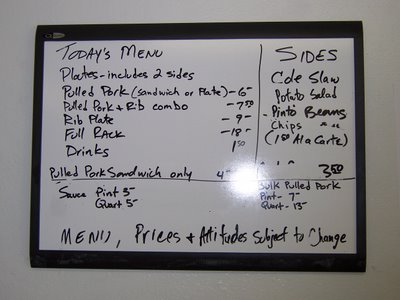 TODAY'S MENU
Plates-includes 2 sides
Pulled Pork (sandwich or Plate) - 6-
Pulled Pork + Rib combo - 7.50
Rib Plate - 9-
Full Rack - 18-
Drinks 1.50
Pulled Pork Sandwich only 4-
Sauce Pint 3-
Quart 5-
SIDES
Cole Slaw
Potato Salad
- Pinto Beans
Chips " "
(1.50 Ala Carte)
3.50
Bulk Pulled Pork
Pint- 7-
Quart- 13-
MENU, PRICES + Attitudes Subject to Change